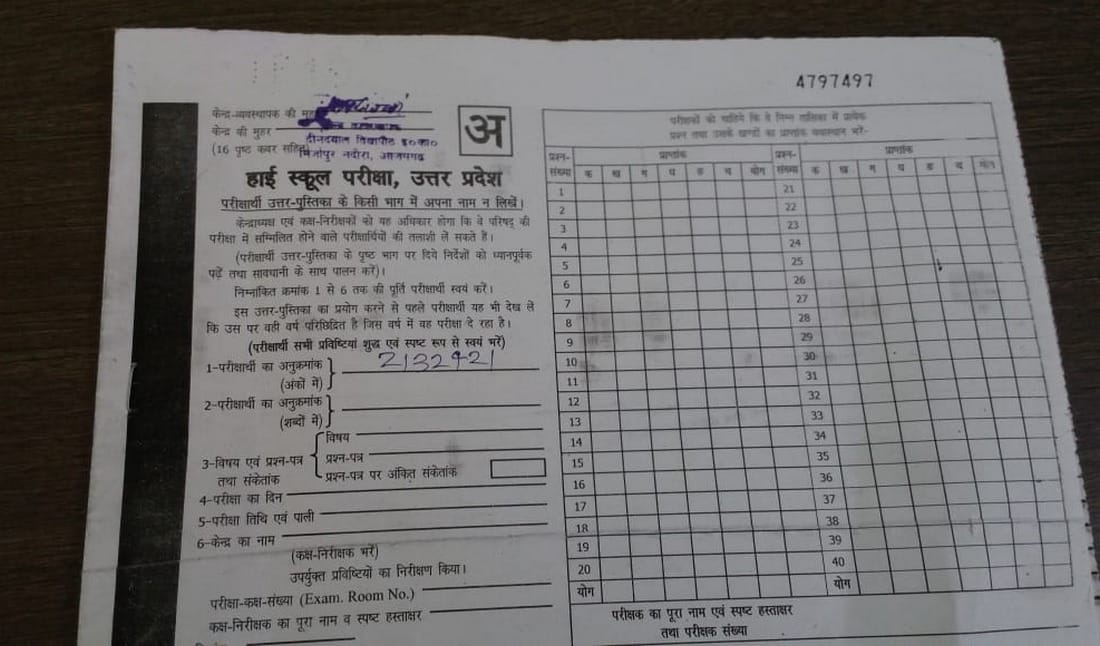 4797497
केन्द्र-व्यवस्थापक की मुहर
केन्द्र की मुहर
(16 पृष्ठ कवर सहित)
दीनदयाल विद्यापीठ इ०का०
मिर्जापुर नदीरा, आजमगढ़
अ
हाई स्कूल परीक्षा, उत्तर प्रदेश
परीक्षार्थी उत्तर-पुस्तिका के किसी भाग में अपना नाम न लिखें।
केन्द्राध्यक्ष एवं कक्ष-निरीक्षकों को यह अधिकार होगा कि वे परिषद् की
परीक्षा में सम्मिलित होने वाले परीक्षार्थियों की तलाशी ले सकते हैं।
(परीक्षार्थी उत्तर-पुस्तिका के पृष्ठ भाग पर दिये निर्देशों को ध्यानपूर्वक
पढ़ें तथा सावधानी के साथ पालन करें)।
निम्नांकित क्रमांक 1 से 6 तक की पूर्ति परीक्षार्थी स्वयं करें।
इस उत्तर-पुस्तिका का प्रयोग करने से पहले परीक्षार्थी यह भी देख लें
कि उस पर वही वर्ष परिछिद्रित है जिस वर्ष में वह परीक्षा दे रहा है।
(परीक्षार्थी सभी प्रविष्टियां शुद्ध एवं स्पष्ट रूप से स्वयं भरें)
1-परीक्षार्थी का अनुक्रमांक
(अंकों में)
2132421
2-परीक्षार्थी का अनुक्रमांक
(शब्दों में)
3-विषय एवं प्रश्न-पत्र
तथा संकेतांक
विषय
प्रश्न-पत्र
प्रश्न-पत्र पर अंकित संकेतांक
4-परीक्षा का दिन
5-परीक्षा तिथि एवं पाली
6-केन्द्र का नाम
(कक्ष-निरीक्षक भरें)
उपर्युक्त प्रविष्टियों का निरीक्षण किया।
परीक्षा-कक्ष-संख्या (Exam. Room No.)
कक्ष-निरीक्षक का पूरा नाम व स्पष्ट हस्ताक्षर
परीक्षकों को चाहिये कि वे निम्न तालिका में प्रत्येक
प्रश्न तथा उसके खण्डों का प्राप्तांक यथास्थान भरें-
प्रश्न-संख्या प्राप्तांक प्रश्न-संख्या प्राप्तांक
क ख ग घ ङ च योग क ख ग घ ङ च योग
1 21
2 22
3 23
4 24
5 25
6 26
7 27
8 28
9 29
10 30
11 31
12 32
13 33
14 34
15 35
16 36
17 37
18 38
19 39
20 40
योग योग
परीक्षक का पूरा नाम एवं स्पष्ट हस्ताक्षर
तथा परीक्षक संख्या